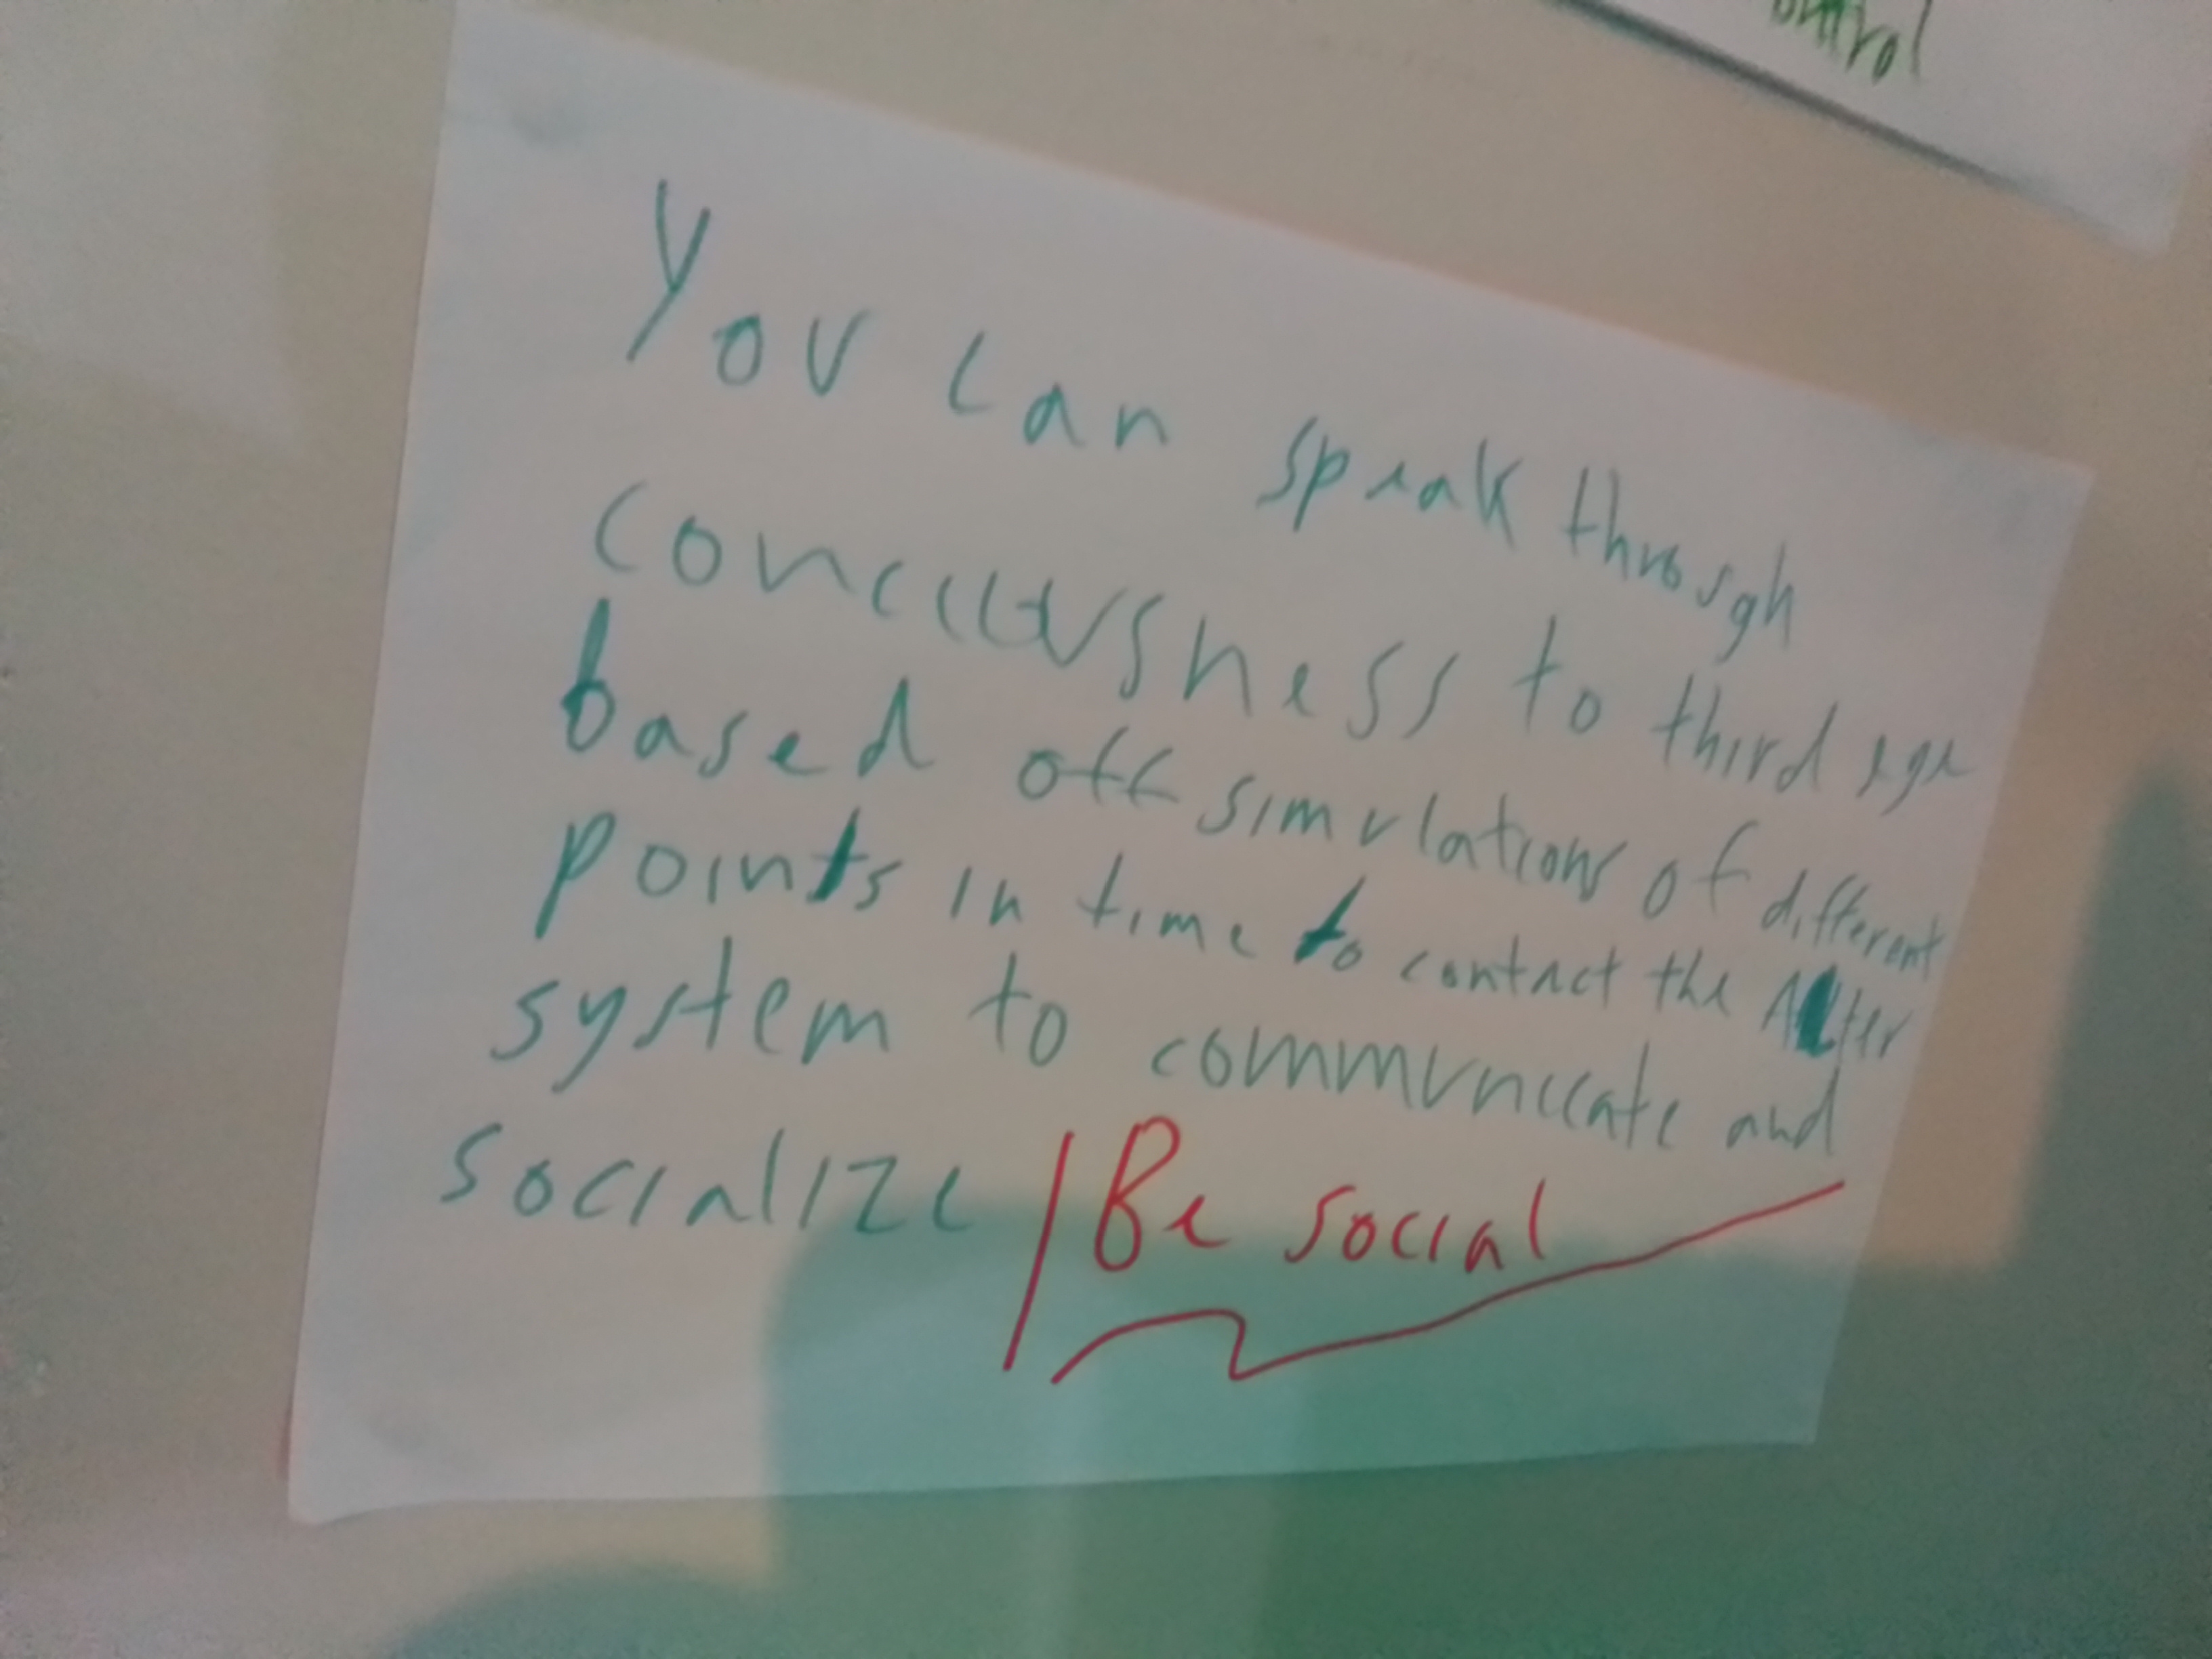 ontrol
You can speak through
conciousness to third eye
based off simulations of different
points in time to contact the Alter
system to communicate and
socialize / Be social